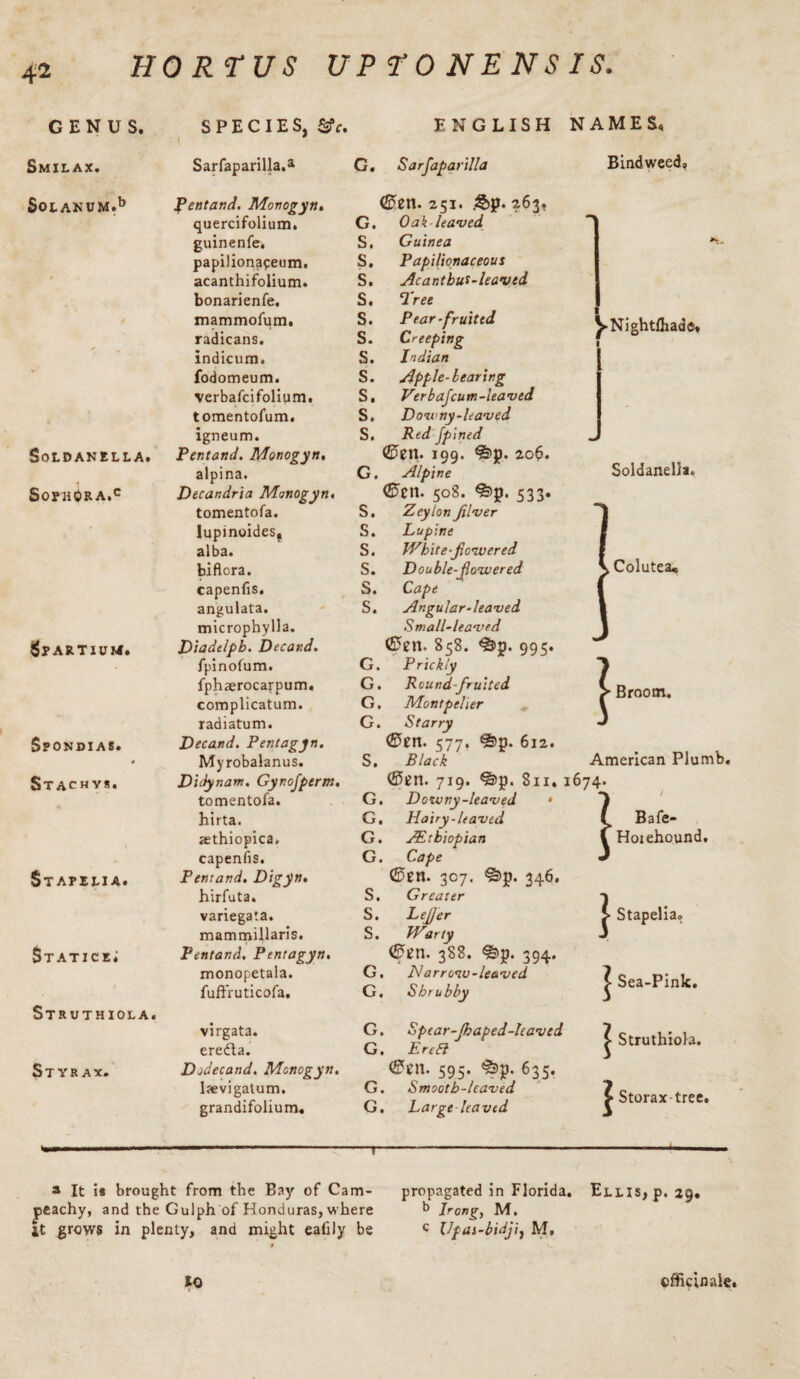 42 HORTUS UPTONENSIS.
GENUS. SPECIES, &c. ENGLISH NAMES.
Smilax. Sarſaparilla.a G. Sarſaparilla Bindweed.
Solanum.b Pentand. Monogyn. Gen. 251. Sp. 263.
quercifolium. G. Oak-leaved
guineenſe. S. Guinea
papilionaceum. S. Papilionaceous
acanthifolium. S. Acanthus-leaved
bonarienſe. S. Tree
mammoſum. S. Pear-fruited } Nightſhade.
radicans. S. Creeping
indicum. S. Indian
ſodomeum. S. Apple-bearing
verbaſcifolium. S. Verbaſcum-leaved
tomentoſum. S. Downy-leaved
igneum. S. Red ſpined
Soldanella. Pentand. Monogyn. Gen. 199. Sp. 206.
alpina. G. Alpine Soldanella.
Sophora.c Decandria Monogyn. Gen. 508. Sp. 533.
tomentoſa. S. Zeylon ſilver
lupinoides. S. Lupine
alba. S. White-flowered
biflora. S. Double-flowered } Colutea.
capenſis. S. Cape
angulata. S. Angular-leaved
microphylla. Small-leaved
Spartium. Diadelph. Decand. Gen. 858. Sp. 995.
ſpinoſum. G. Prickly
ſphærocarpum. G. Round-fruited } Broom.
complicatum. G. Montpelier
radiatum. G. Starry
Spondias. Decand. Pentagyn. Gen. 577. Sp. 612.
Myrobalanus. S. Black American Plumb.
Stachys. Didynam. Gynoſperm. Gen. 719. Sp. 811. 1674.
tomentoſa. G. Downy-leaved
hirta. G. Hairy-leaved } Baſe-
æthiopica. G. Æthiopian Horehound.
capenſis. G. Cape
Stapelia. Pentand. Digyn. Gen. 307. Sp. 346.
hirſuta. S. Greater
variegata. S. Leſſer } Stapelia.
mammillaris. S. Warty
Statice. Pentand. Pentagyn. Gen. 388. Sp. 394.
monopetala. G. Narrow-leaved } Sea-Pink.
ſuffruticoſa. G. Shrubby
Struthiola.
virgata. G. Spear-ſhaped-leaved } Struthiola.
erecta. G. Erect
Styrax. Dodecand. Monogyn. Gen. 595. Sp. 635.
lævigatum. G. Smooth-leaved } Storax-tree.
grandifolium. G. Large-leaved
a It is brought from the Bay of Cam-
peachy, and the Gulph of Honduras, where
it grows in plenty, and might eaſily be
propagated in Florida. Ellis, p. 29.
b Irong, M.
c Upas-bidji, M.
10 officinale.